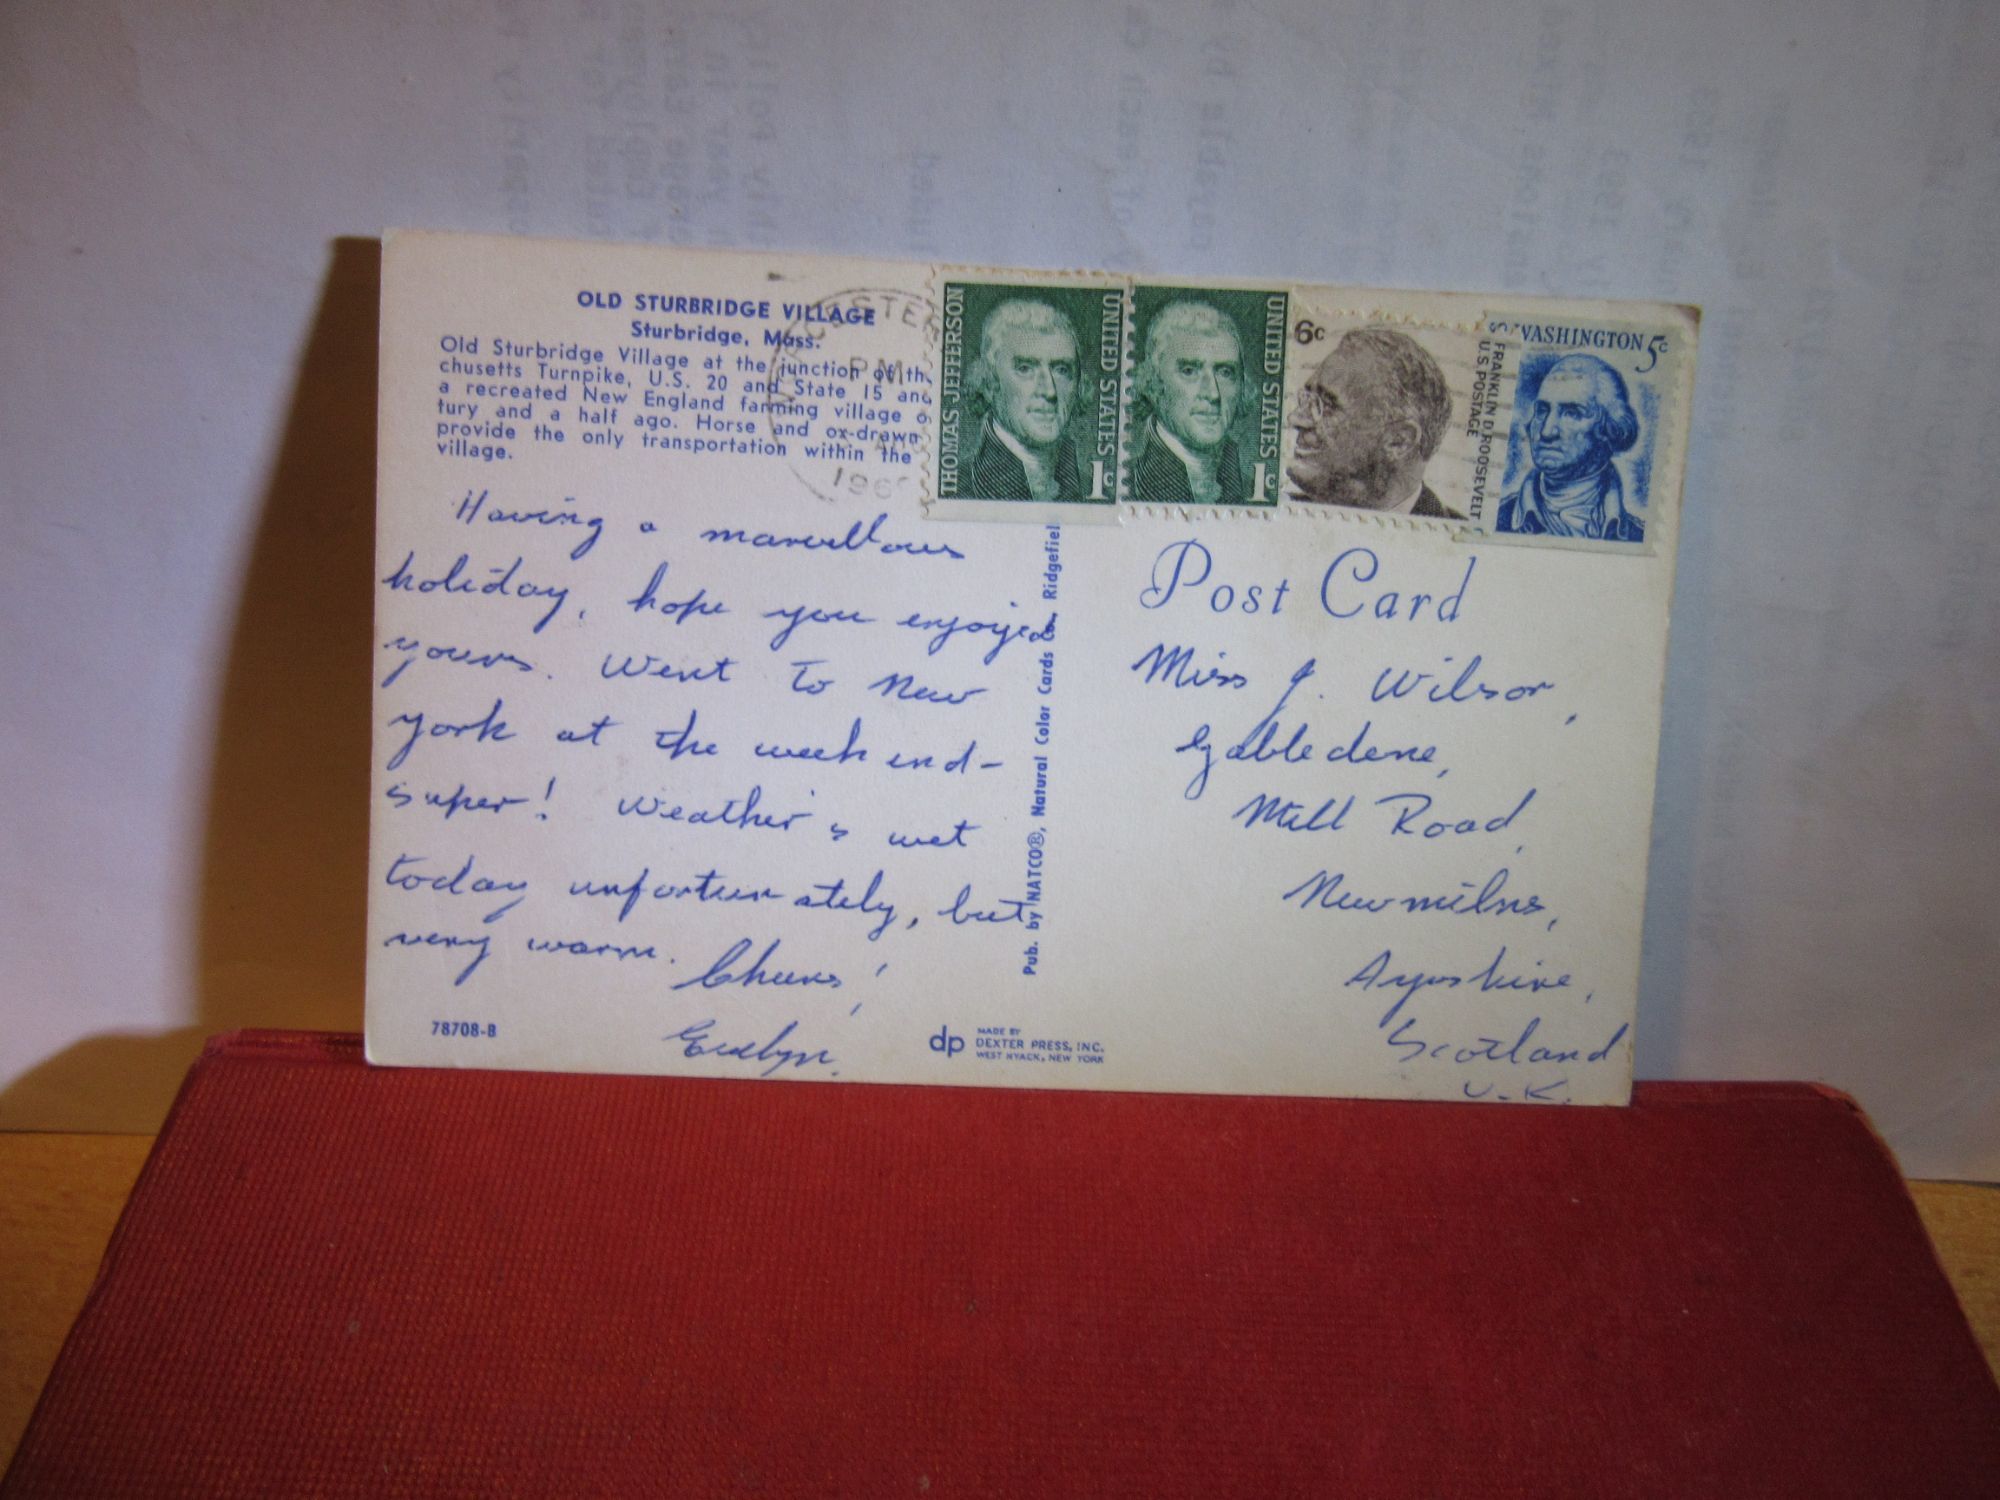 OLD STURBRIDGE VILLAGE
Sturbridge, Mass.
Old Sturbridge Village at the junction of th
chusetts Turnpike, U.S. 20 and State 15 and
a recreated New England farming village o
tury and a half ago. Horse and ox-drawn
provide the only transportation within the
village.
Having a marvellous
holiday, hope you enjoyed
yours. Went to New
york at the week end-
super! Weather's wet
today unfortunately, but
very warm.
Cheers!
Evelyn.
78708-B
dp
MADE BY
DEXTER PRESS, INC.
WEST NYACK, NEW YORK
Pub. by NATCO®, Natural Color Cards Co., Ridgefiel
WORCESTER
PM
196
THOMAS JEFFERSON
UNITED STATES
1c
UNITED STATES
1c
6c
FRANKLIN D. ROOSEVELT
U.S. POSTAGE
WASHINGTON 5c
Post Card
Miss J. Wilson,
Gabledene,
Mill Road,
Newmilns,
Ayrshire,
Scotland
U.K.